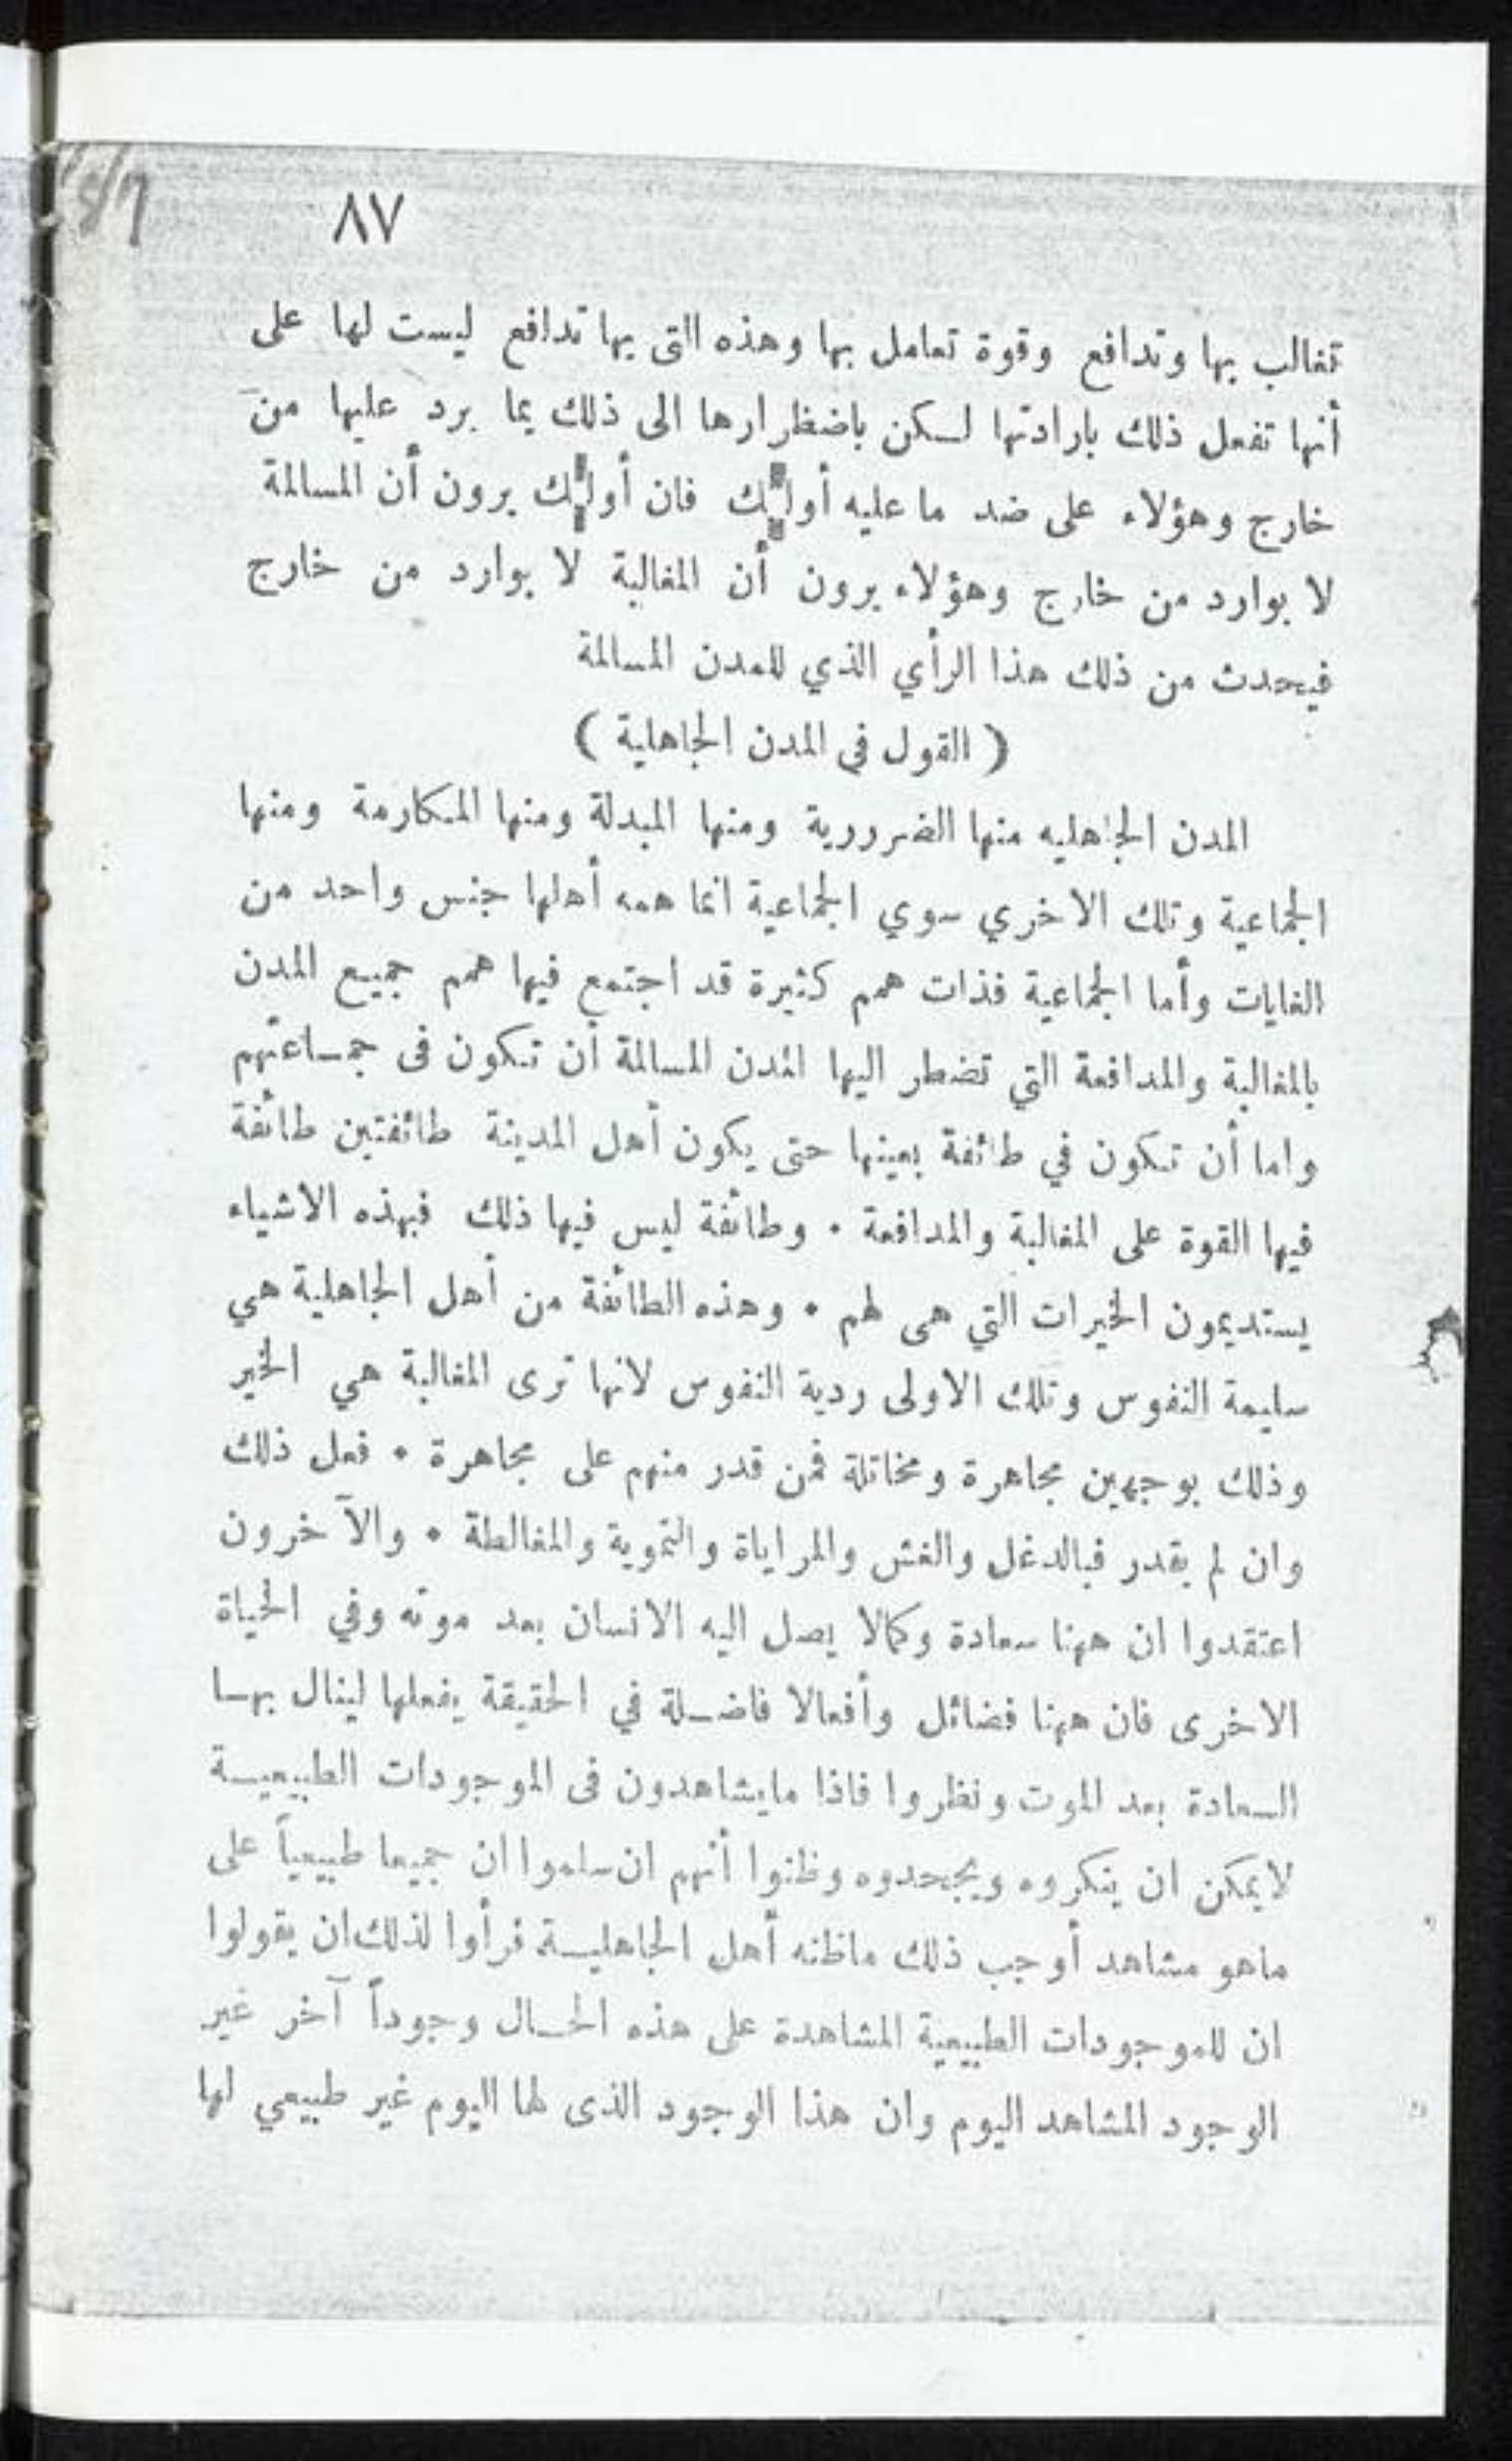 ٨٧
تغالب بها وتدافع وقوة تعامل بها وهذه التى بها تدافع ليست لها على
أنها تفعل ذلك بارادتها لكن باضطرارها الى ذلك بما يرد عليها من
خارج وهؤلاء على ضد ما عليه أولئك فان أولئك يرون أن المسالمة
لا بوارد من خارج وهؤلاء يرون أن المغالبة لا بوارد من خارج
فيحدث من ذلك هذا الرأي الذي للمدن المسالمة
( القول فى المدن الجاهلية )
المدن الجاهليه منها الضرورية ومنها المبدلة ومنها المكارمة ومنها
الجماعية وتلك الاخري سوي الجماعية انما همه أهلها جنس واحد من
الغايات وأما الجماعية فذات همم كثيرة قد اجتمع فيها همم جميع المدن
بالمغالبة والمدافعة التي تضطر اليها المدن المسالمة أن تكون فى جماعتهم
واما أن تكون في طائفة بعينها حتى يكون أهل المدينة طائفتين طائفة
فيها القوة على المغالبة والمدافعة • وطائفة ليس فيها ذلك فبهذه الاشياء
يستديمون الخيرات التي هى لهم • وهذه الطائفة من أهل الجاهلية هي
سليمة النفوس وتلك الاولى ردية النفوس لانها ترى المغالبة هي الخير
وذلك بوجهين مجاهرة ومخاتلة فمن قدر منهم على مجاهرة • فعل ذلك
وان لم يقدر فبالدغل والغش والمراياة والتموية والمغالطة • والآخرون
اعتقدوا ان ههنا سعادة وكمالا يصل اليه الانسان بعد موته وفي الحياة
الاخرى فان ههنا فضائل وأفعالا فاضلة في الحقيقة يفعلها لينال بها
السعادة بعد الموت ونظروا فاذا مايشاهدون فى الموجودات الطبيعية
لايمكن ان ينكروه ويجحدوه وظنوا أنهم ان سلموا ان جميعا طبيعياً على
ماهو مشاهد أوجب ذلك ماظنه أهل الجاهلية فرأوا لذلك ان يقولوا
ان للموجودات الطبيعية المشاهدة على هذه الحال وجوداً آخر غير
الوجود المشاهد اليوم وان هذا الوجود الذى لها اليوم غير طبيعي لها